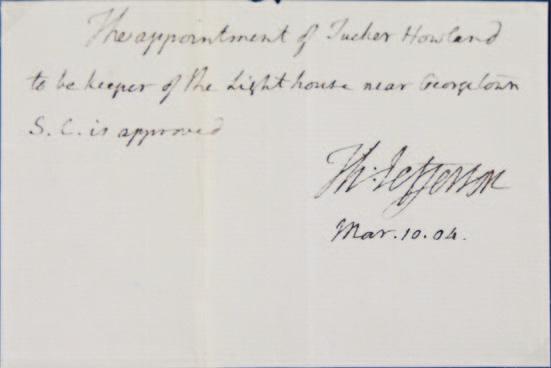 The appointment of Tucker Howland
to be keeper of the Light house near Georgetown
S. C. is approved
Th: Jefferson
Mar. 10. 04.